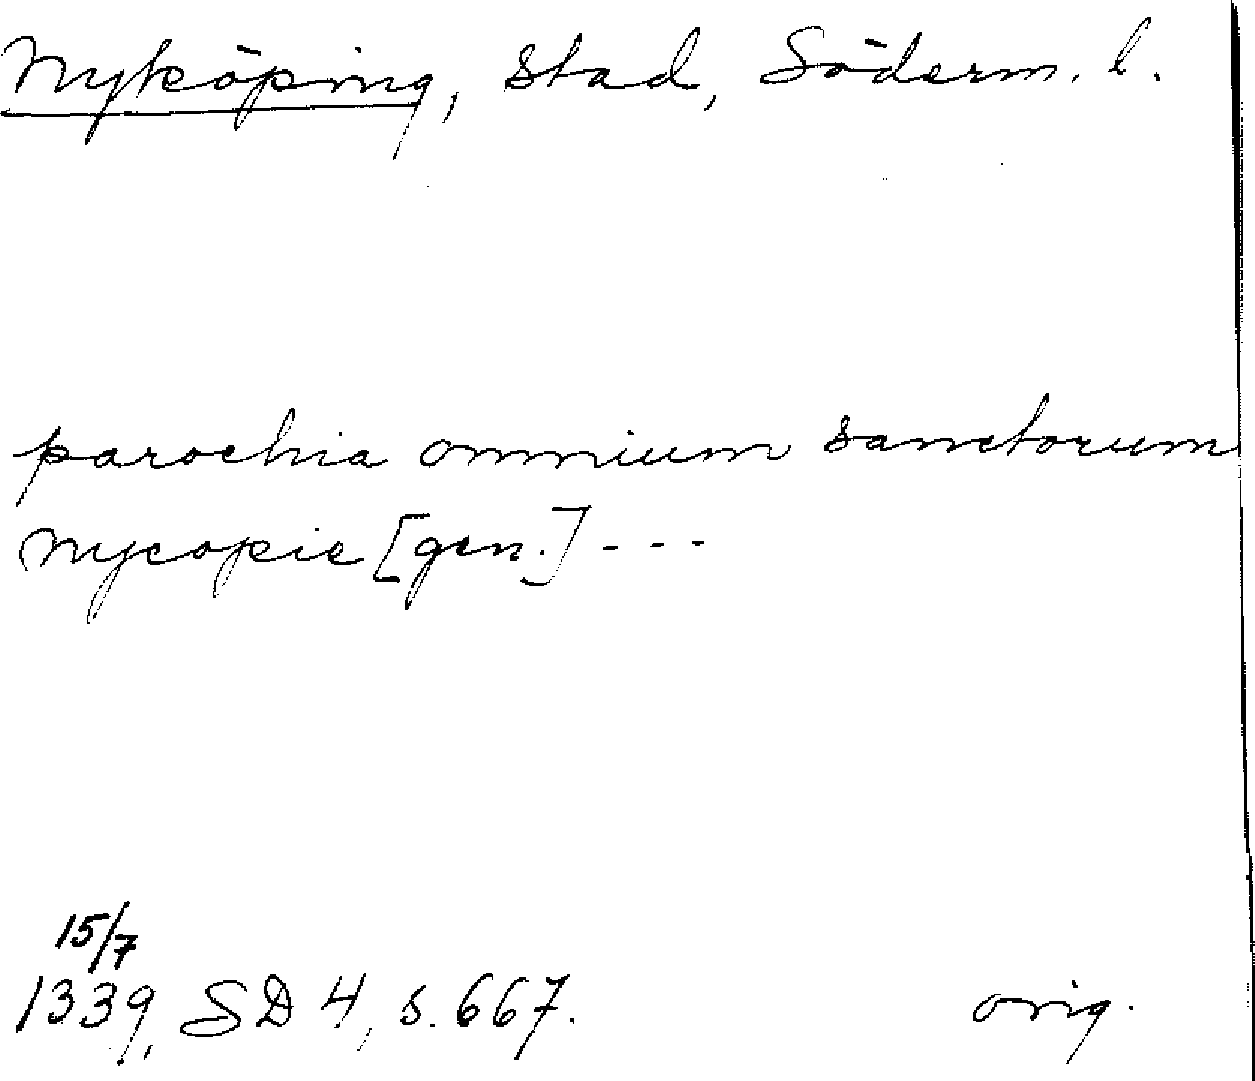 Nyköping, stad, Söderm. l.
parochia omnium sanctorum
Nycopie [gen.] - - -
15/7
1339, SD 4, s. 667.
orig.